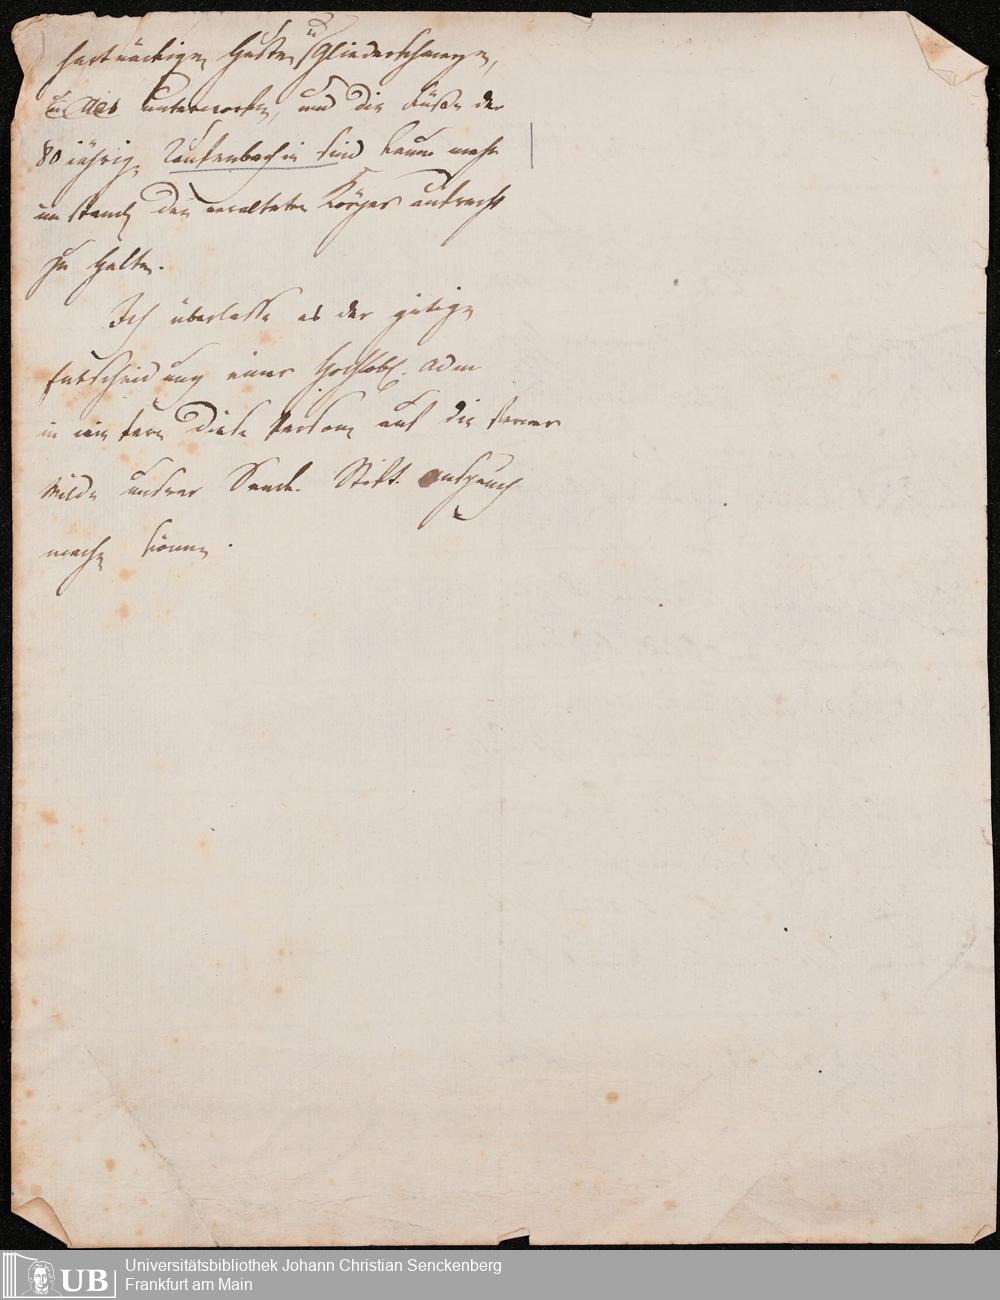 hartnäckigen Husten u Gliederschmerzen,
unterworfen, und die Füße der
80 jährigen sind kaum mehr
im stand den veralteten Körper aufrecht
zu halten.
Ich überlasse es der gütigen
Entscheidung einer Hochlobl. Adm
in wie fern diese Person auf die fernere
Milde unserer Senck. Stift. anspruch
machen könne.
UB
Universitätsbibliothek Johann Christian Senckenberg
Frankfurt am Main